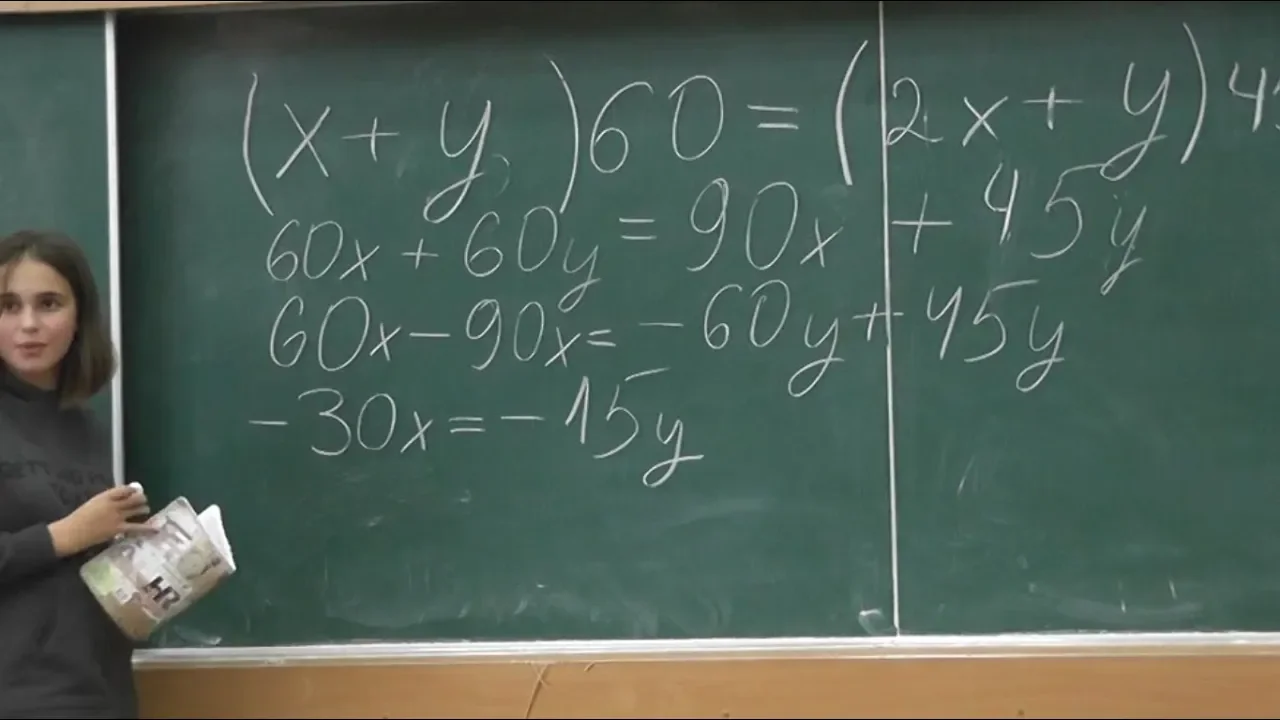 (x + y)60 = (2x + y)45
60x + 60y = 90x + 45y
60x - 90x = - 60y + 45y
- 30x = - 15y